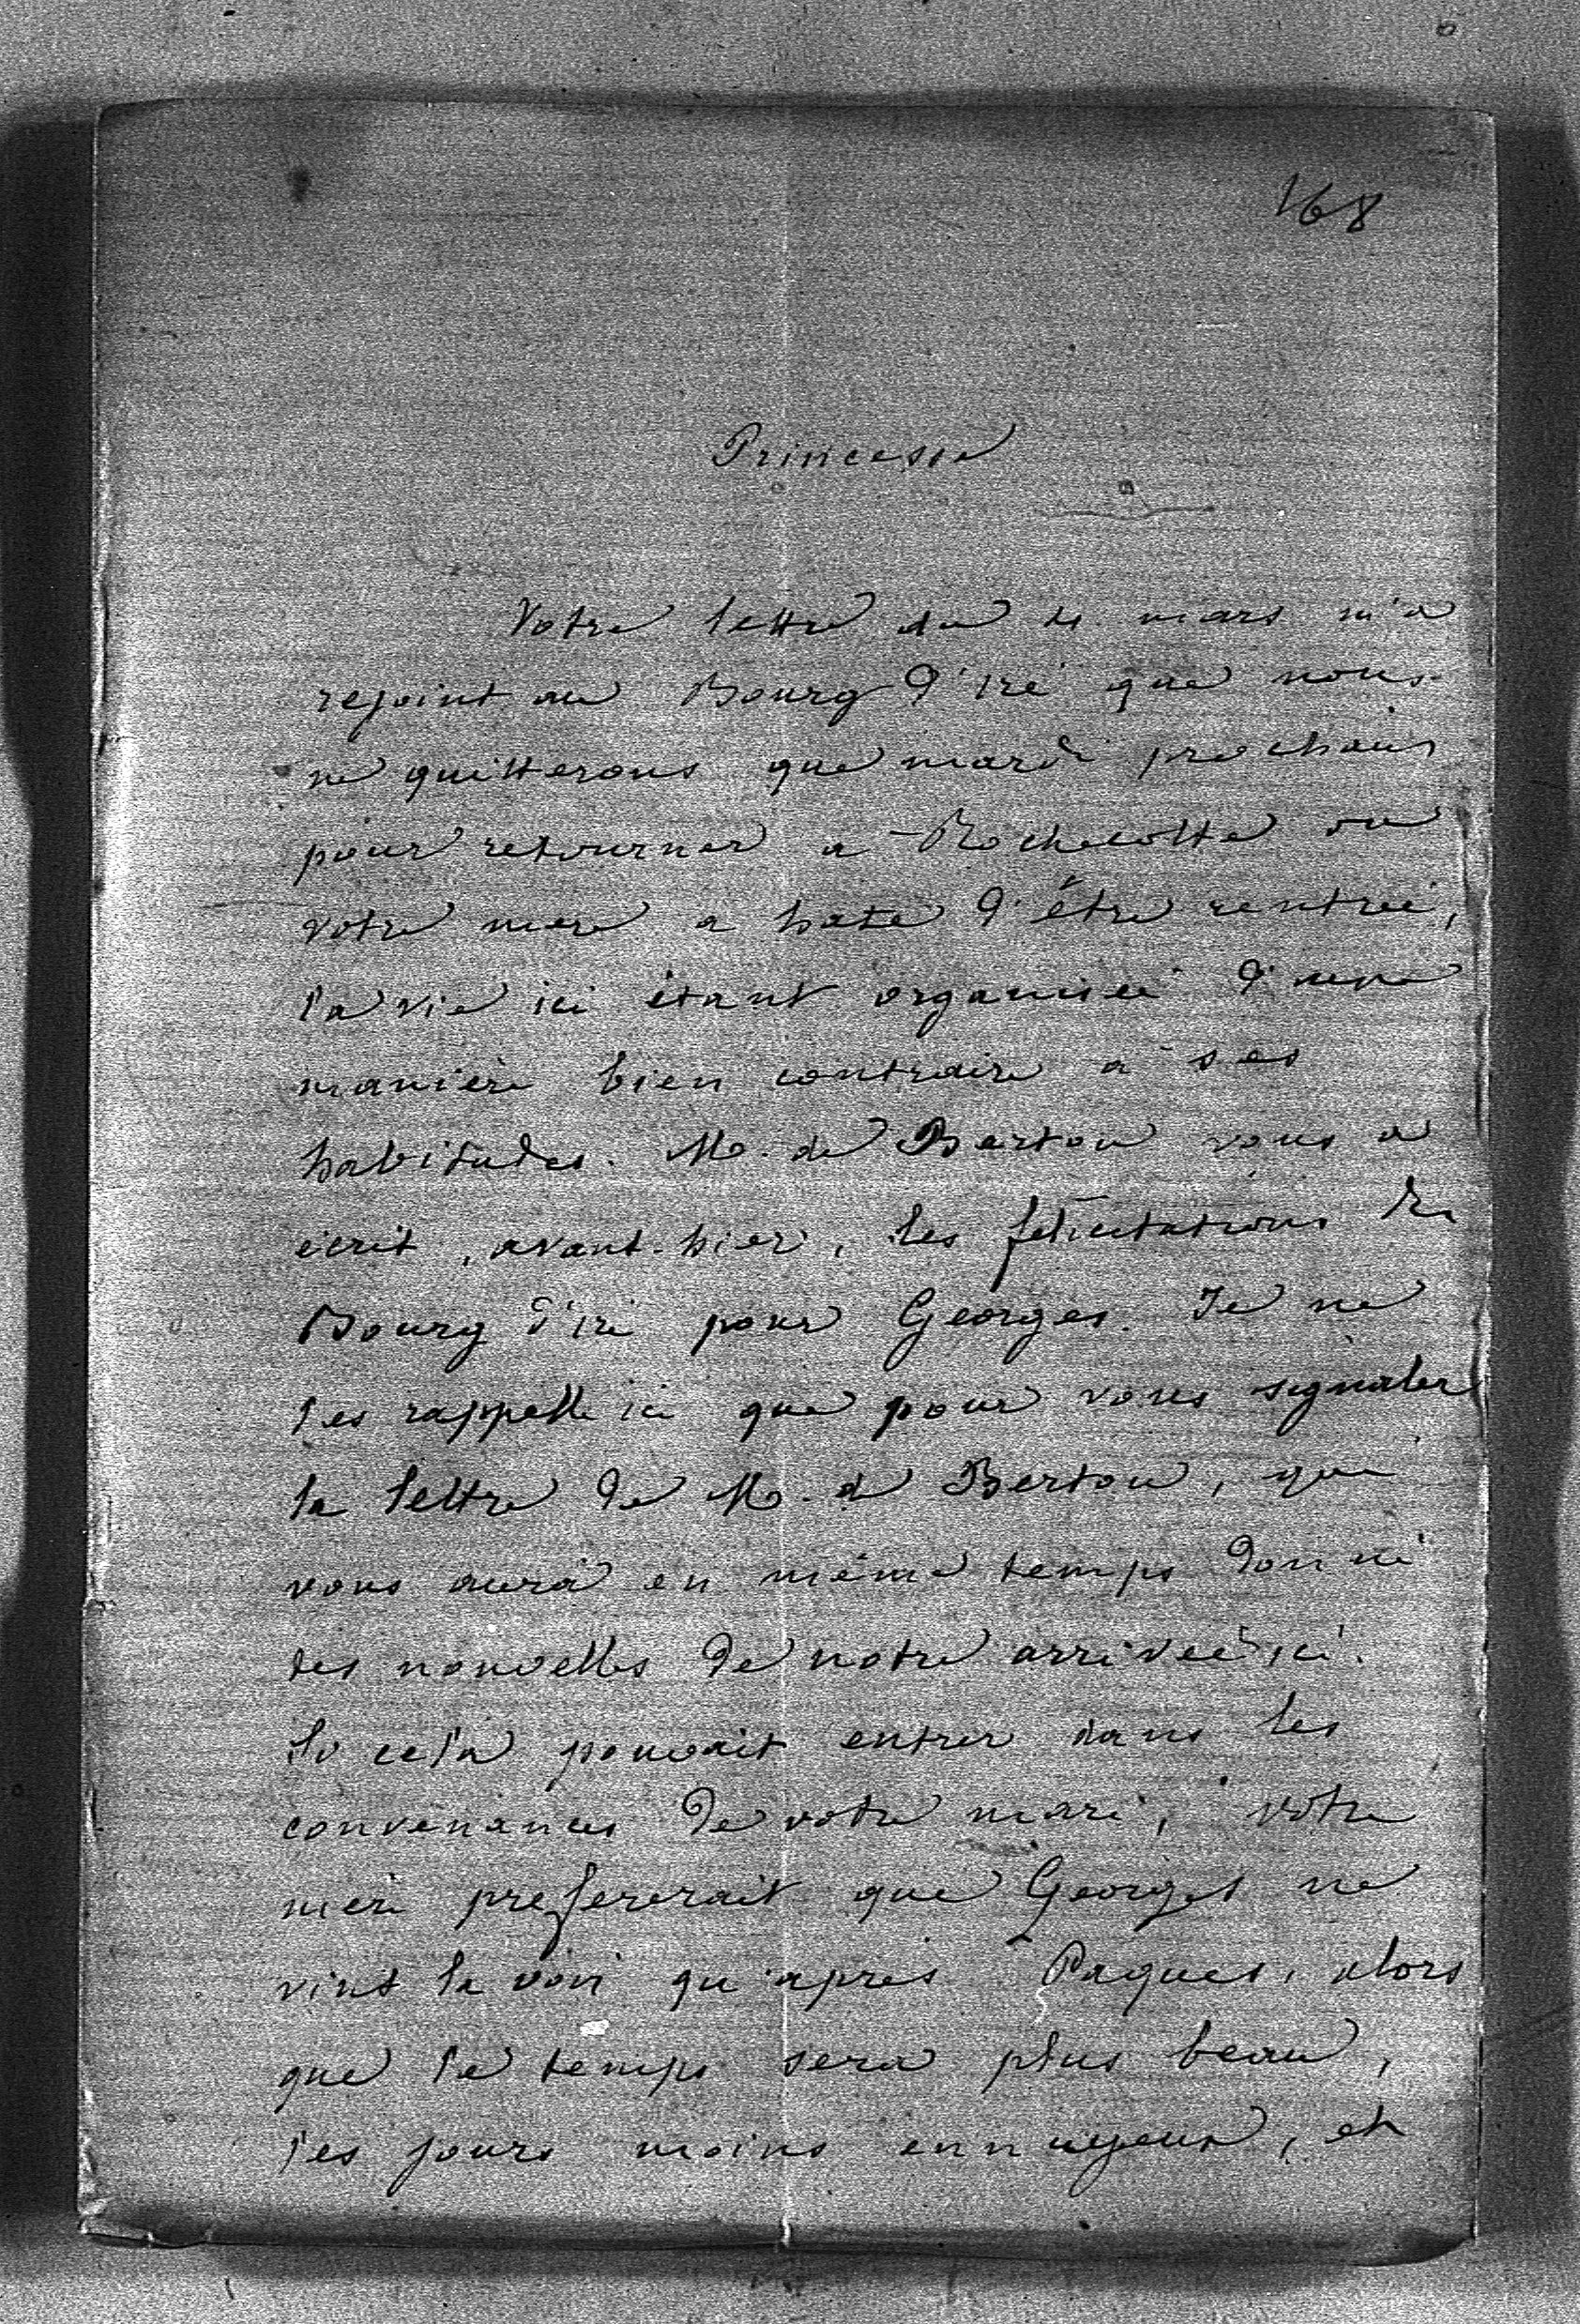 168
Princesse
Votre lettre du 4 mars m'a
rejoint au Bourg d'iré que nous
ne quitterons que mardi prochain
pour retourner a Rochecotte ou
votre mere a hate d'être rentrée,
la vie ici étant organisée d'une
maniere bien contraire a ses
habitudes. Mr. de Bertou vous a
écrit, avant-hier, les felicitations du
Bourg d'iré pour Georges. Je ne
les rappelle ici que pour vous signaler
la lettre de Mr. de Bertou, qui
vous aura en même temps donné
des nouvelles de notre arrivée ici.
Si cela pouvait entrer dans les
convenances de votre mari, votre
mere prefererait que Georges ne
vint la voir qu'apres Paques, alors
que le temps sera plus beau,
les jours moins ennuyeux, et